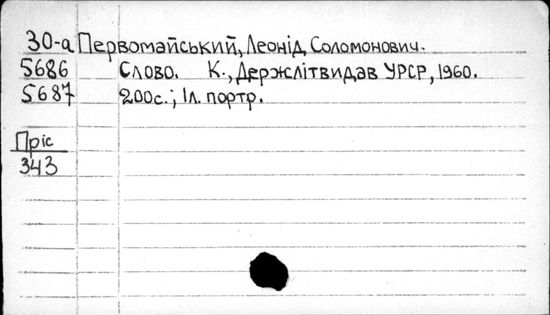 30-а Первомайський, Леонід Соломонович.
5686 Слово. К., Держлітвидав УРСР, 1960.
5687 200с.; 1л. портр.
Пріс
343